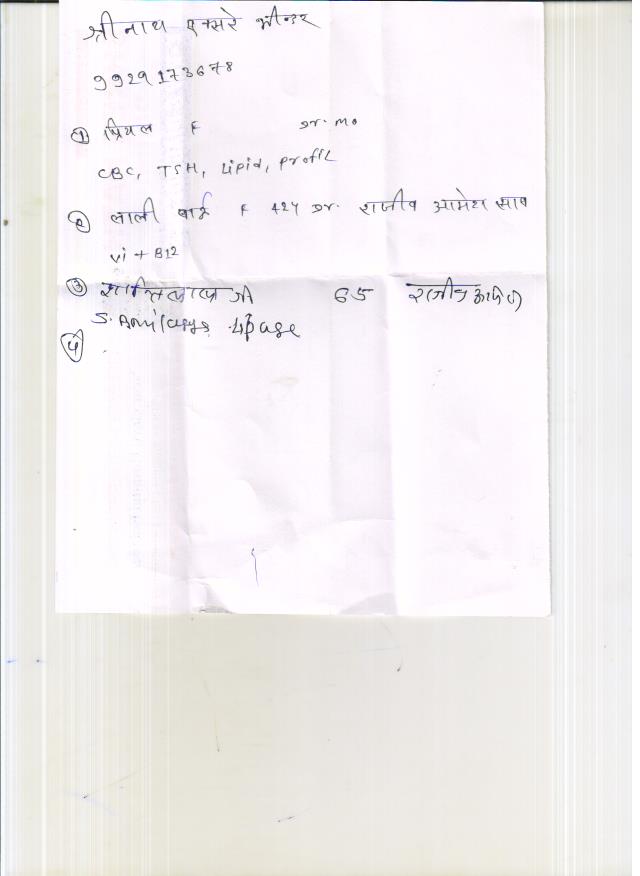 श्रीनाथ एक्सरे भीन्डर
9929173678
① प्रियल F Dr. MO
CBC, TSH, Lipid, Profil
② लाली बाई F 42Y Dr. राजीव आमेटा साब
vi + B12
③ शान्तिलाल जी 65 राजीव
S. Amilayys Lipase
④